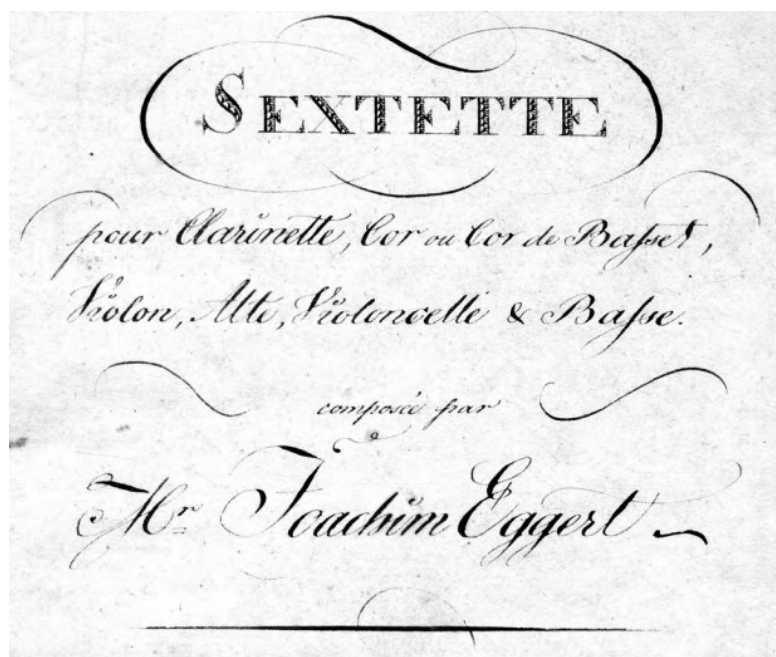 SEXTETTE
pour Clarinette, Cor ou Cor de Baſset,
Violon, Alte, Violoncelle & Baſse.
composée par
Mr Joachim Eggert